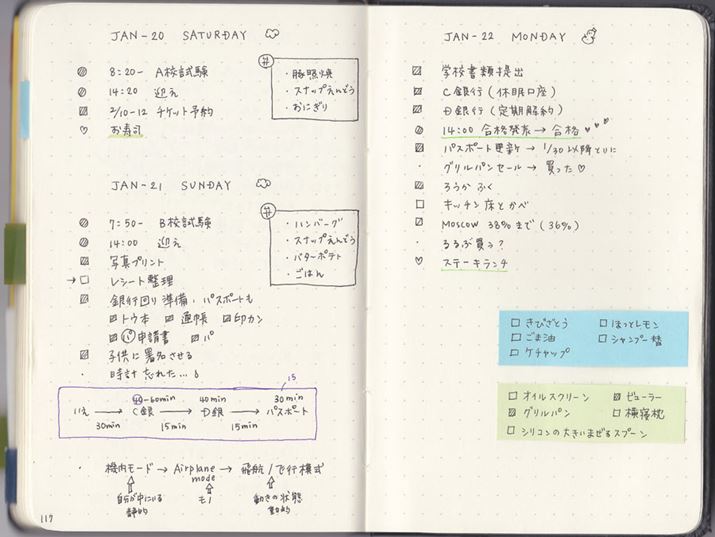 JAN-20 SATURDAY
8:20- A校試験
14:20 迎え
2/10-12 チケット予約
お寿司
#
・豚照焼
・スナップえんどう
・おにぎり
JAN-21 SUNDAY
7:50- B校試験
14:00 迎え
写真プリント
→ レシート整理
銀行回り準備、パスポートも
トウ本 通帳 印カン
パ申請書 パ
子供に署名させる
時計忘れた…
#
・ハンバーグ
・スナップえんどう
・バターポテト
・ごはん
15
40-60min 40min 30min
→ C銀 → D銀 → パスポート
30min 15min 15min
・機内モード → Airplane mode → 飛航/飞行模式
自分が中にいる モノ 動きの状態
静的 動的
117
JAN-22 MONDAY
学校書類提出
C銀行(休眠口座)
D銀行(定期解約)
14:00 合格発表→合格
パスポート更新→1/30以降とりに
・グリルパンセール→買った♡
ろうかふく
キッチン床とかべ
Moscow 38%まで(36%)
・るるぶ買う?
♡ ステーキランチ
きびざとう ほっとレモン
ごま油 シャンプー替
ケチャップ
オイルスクリーン ビューラー
グリルパン 横寝枕
シリコンの大きいまぜるスプーン